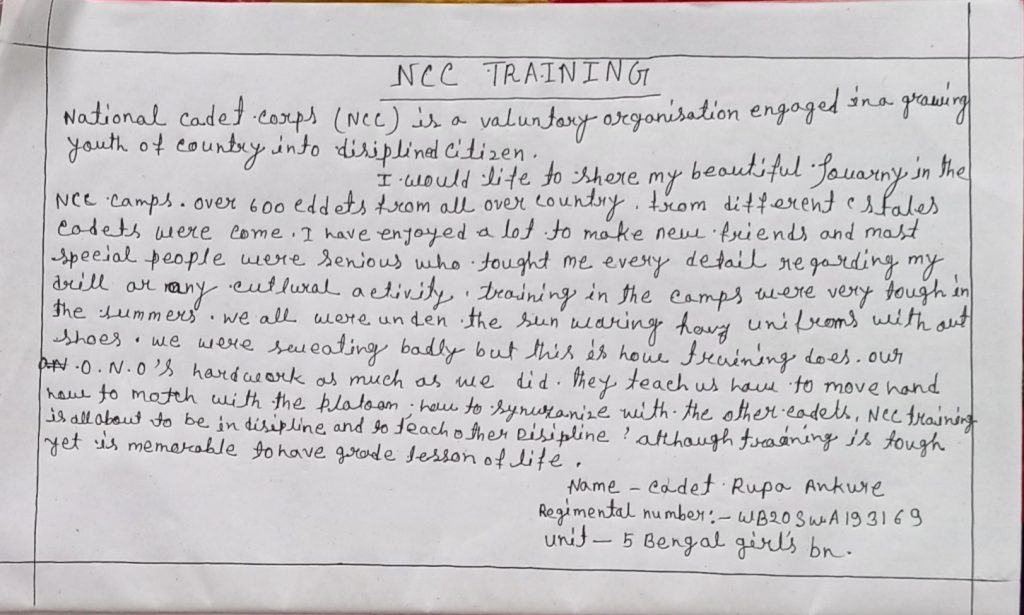 NCC TRAINING
National cadet corps (NCC) is a valuntary organisation engaged in a grawing
youth of country into disiplined citizen.
I would life to shere my beautiful Jouarny in the
NCC camps. over 600 cddets from all over country. from different estales
cadets were come. I have enjoyed a lot to make new friends and mast
special people were Senious who tought me every detail regarding my
drill ar any cultural activity. training in the camps were very tough in
the summers. we all were unden the sun waring havy unifroms with out
shoes. we were seueating badly but this is how training does. our
A.N.O'S hardwork as much as we did. they teach us how to move hand
how to match with the platoon. how to synuranize with the other cadets. NCC training
is all about to be in disipline and to teach other Disipline! athough traaning is tough
yet is memerable to have grade lesson of life.
Name - cadet Rupa Ankure
Regimental number:- WB20SWA193169
unit - 5 Bengal girl's bn.